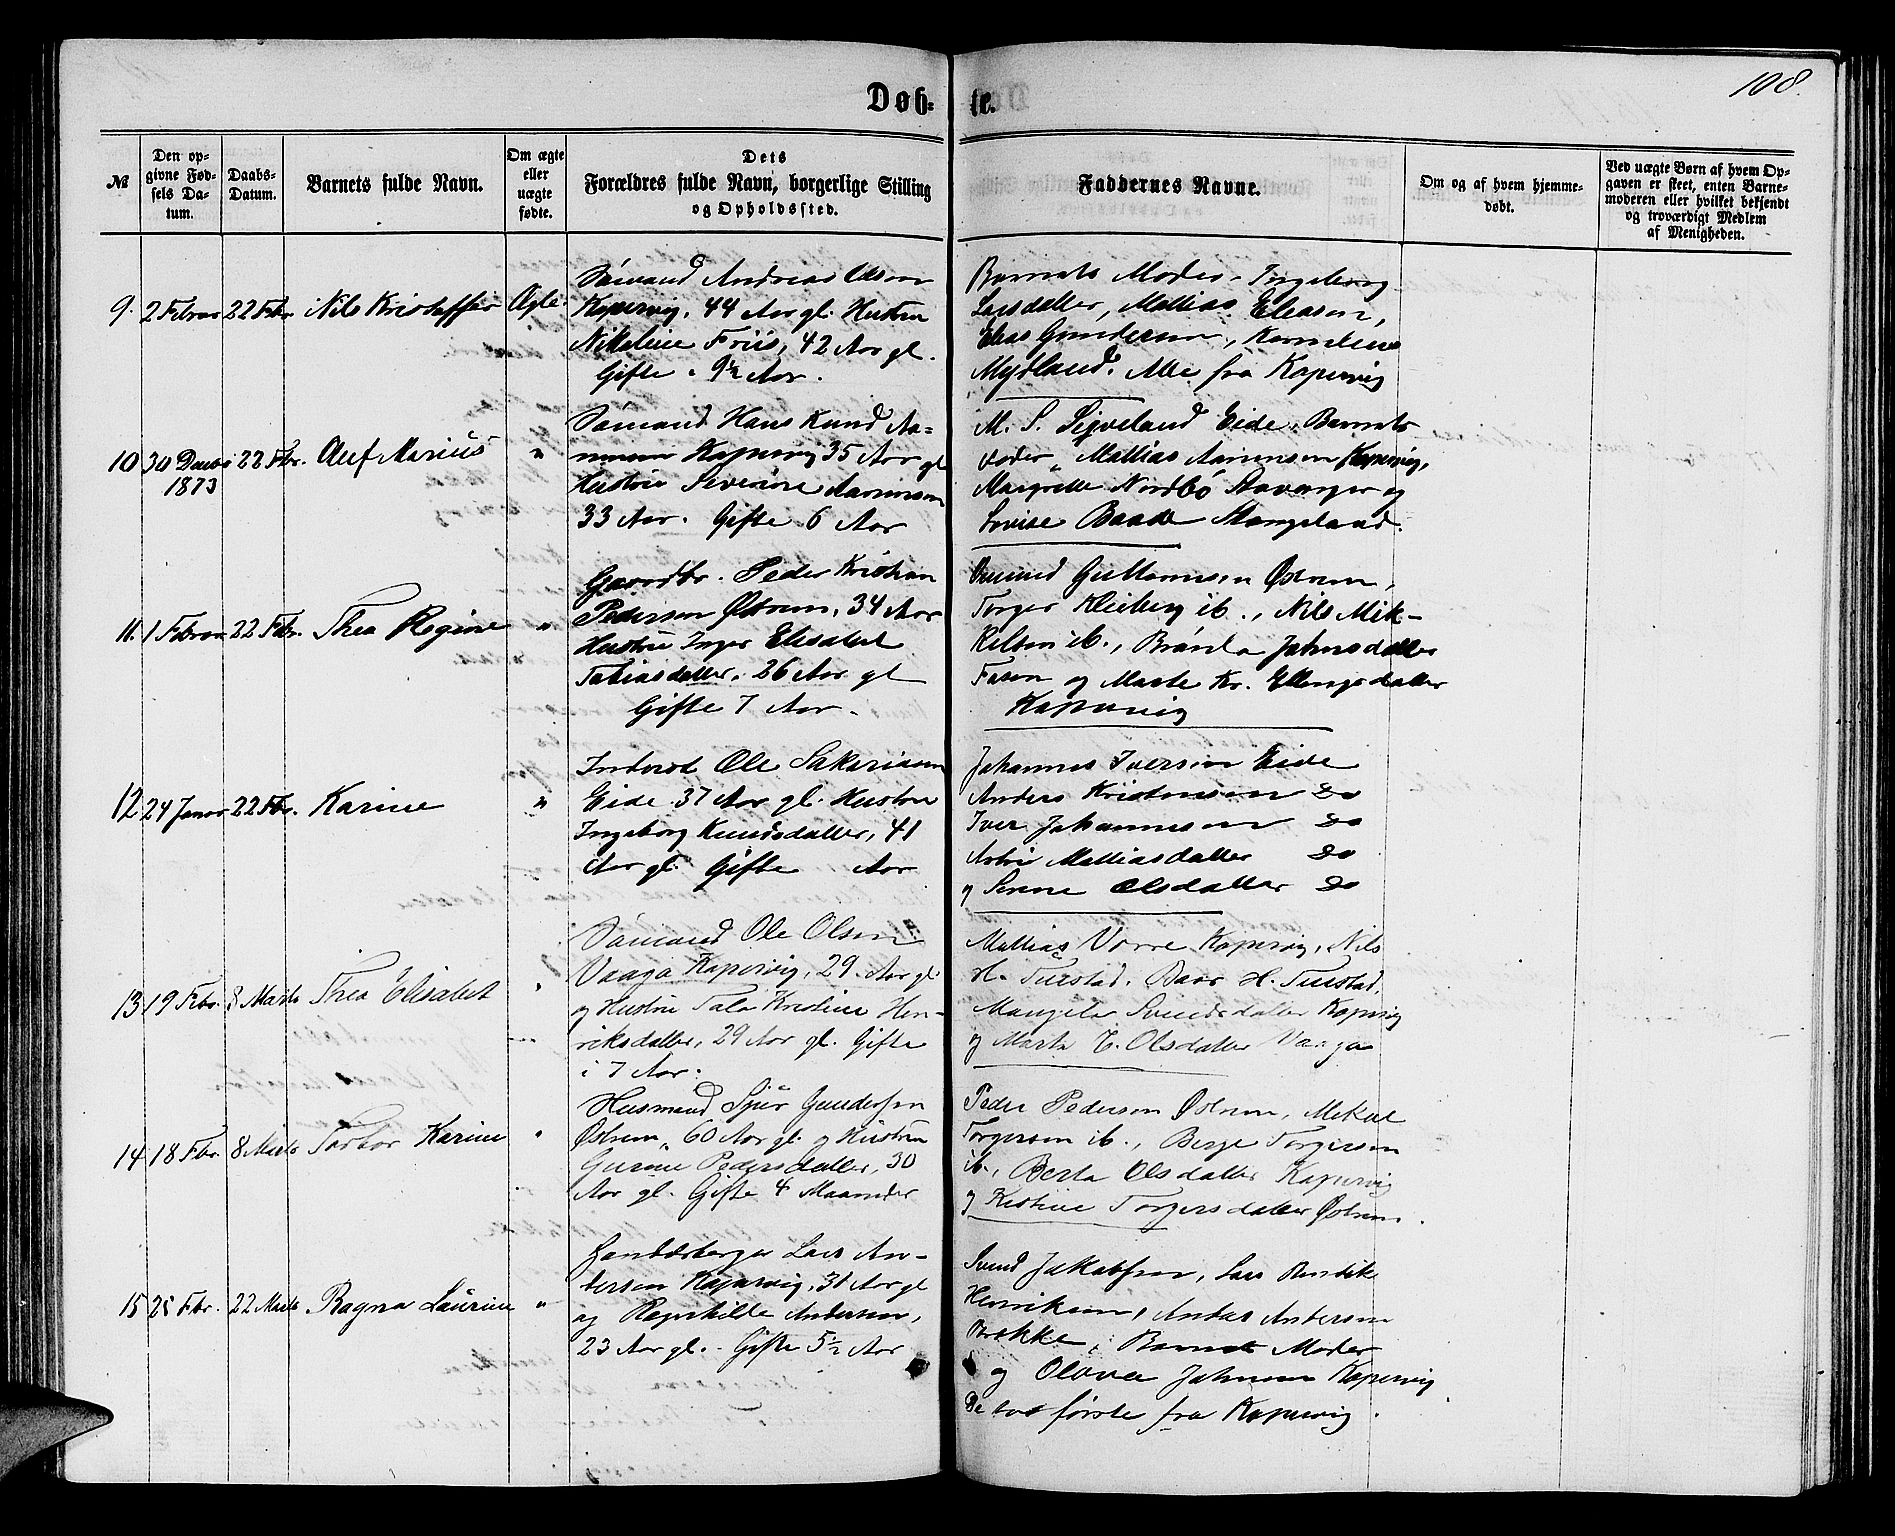 108.
Døb-
te.
№
Den op-
givne Fød-
sels Da-
tum.
Daabs-
Datum.
Barnets fulde Navn.
Om ægte
eller
uægte
fødte.
Dets
Forældres fulde Navn, borgerlige Stilling
og Opholdssted.
Faddernes Navne.
Om og af hvem hjemme-
døbt.
Ved uægte Børn af hvem Op-
gaven er skeet, enten Barne-
moderen eller hvilket bekjendt
og troværdigt Medlem
af Menigheden.
9. 2 Febrar 22 Febr. Nils Kristoffer Ægte
Sømand Andreas Olsen
Kopervig, 44 Aar gl. Hustru
Nikoline Friis, 42 Aar gl.
Gifte 9½ Aar.
Barnets Moder, Ingeborg
Larsdatter, Mathias Eleasen,
Elias Gundersen, Karneline
Mydland. Alle fra Kopervig
10 30 Decbr 22 Fbr. Oluf Marius "
1873
Sømand Hans Knud Aa-
munsen Kopervig 35 Aar gl
Hustru Severine Aamunsen
33 Aar. Gifte 6 Aar
M. S. Sigveland Eide, Barnets
Moder, Mathias Aamunsen Kopervig,
Margrethe Nordbø Stavanger og
Lovise Baade Stangeland.
11. 1 Febrar 22 Fbr. Thea Regine "
Gaardbr. Peder Kristian
Pedersen Østrem, 34 Aar
Hustru Inger Elisabet
Tobiasdatter, 26 Aar gl
Gifte 7 Aar.
Omund Guttormsen Østrem,
Torger Kleiberg ib., Nils Mik-
kelsen ib., Brønla Johnsdatter
Fosen og Marte Kr. Ellingsdatter
Kopervig
12 24 Januar 22 Fbr. Karine "
Inderst Ole Sakariasen
Eide 37 Aar gl. Hustru
Ingeborg Knudsdatter, 41
Aar gl. Gifte Aar
Johannes Iversen Eide
Anders Kristensen Do
Iver Johannesen Do
Mathiasdatter Do
og Serine Olsdatter Do
13 19 Febr. 8 Marts Thea Elisabet "
Sømand Ole Olsen
Vaaga Kopervig, 29 Aar gl
og Hustru Tala Kristine Hen-
riksdatter, 29 Aar gl. Gifte
i 7 Aar.
Mathias Vorre Kopervig, Nils
H. Tuestad, Baar H. Tuestad,
Mangela Svendsdatter Kopervig
og Marta T. Olsdatter Vaaga
14 18 Fbr. 8 Marts Torbor Karine "
Husmand Sjur Gundersen
Østrem, 60 Aar gl. og Hustru
Gurine Pedersdatter, 30
Aar gl. Gifte 4 Maaneder
Peder Pedersen Østrem, Mikal
Torgersen ib., Berge Torgersen
ib., Berta Olsdatter Kopervig
og Kristine Torgersdatter Østrem.
15 25 Fbr. 22 Marts Ragna Laurine "
Handelsborger Lars An-
dersen Kopervig, 31 Aar gl
og Regnhilde Andersen,
23 Aar gl. Gifte 5½ Aar
Svend Jakobsen, Lars Bendik
Henriksen, Andas Andersen
Brekke, Barnets Moder
og Olava Johnsen Kopervig
De to første fra Kopervig.